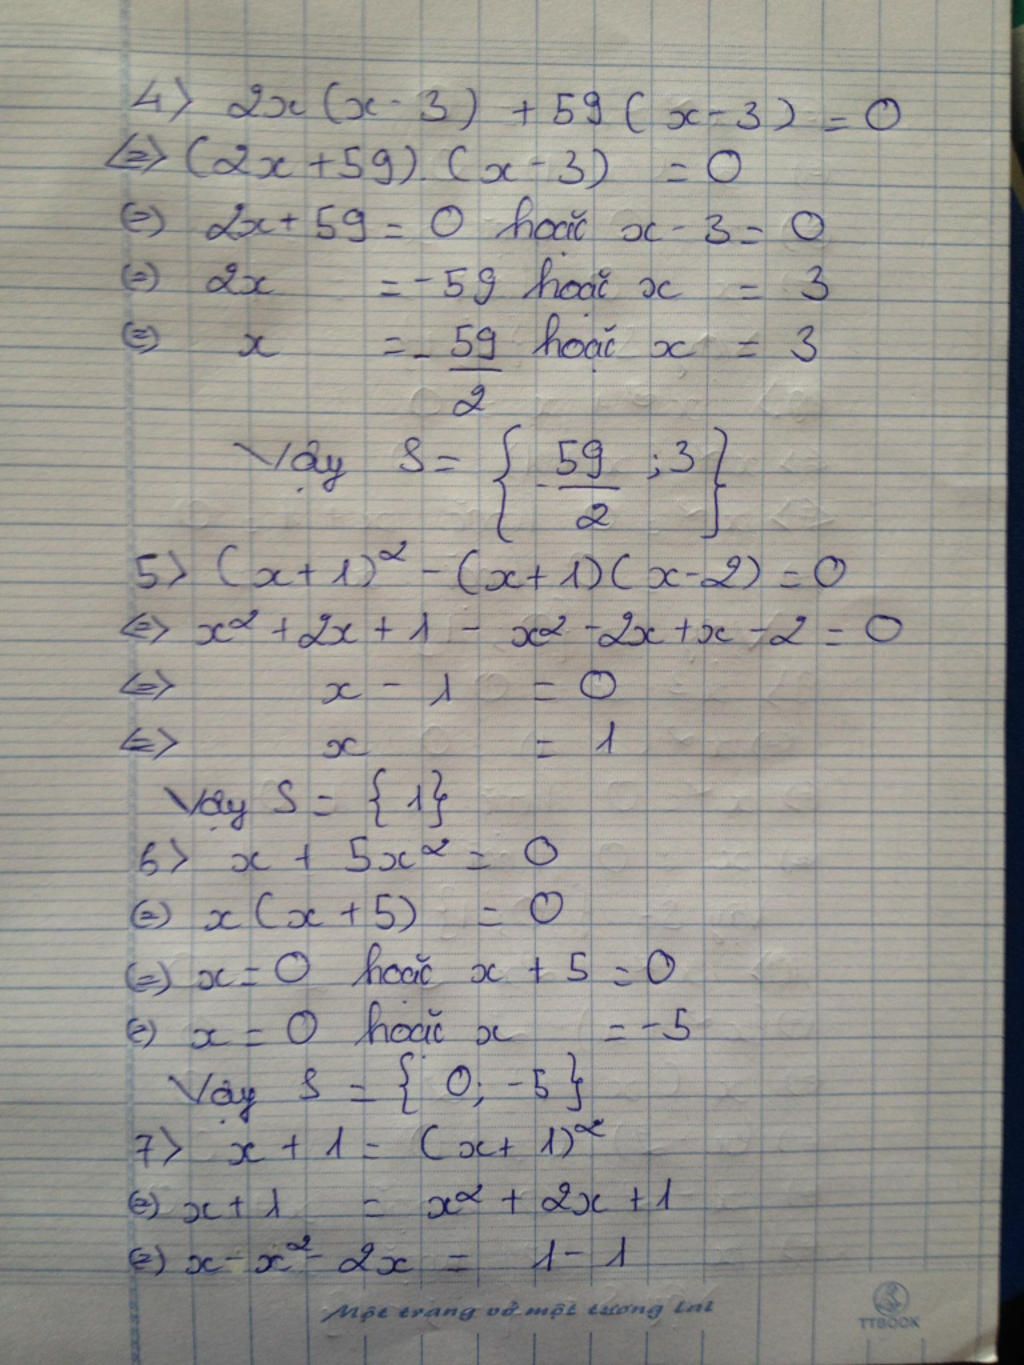 4> 2x(x-3) + 59(x-3) = 0
<=> (2x+59).(x-3) = 0
(=) 2x+59 = 0 hoặc x-3 = 0
(=) 2x = -59 hoặc x = 3
(=) x = -59/2 hoặc x = 3
Vậy S = { -59/2 ; 3 }
5> (x+1)² - (x+1)(x-2) = 0
<=> x² + 2x + 1 - x² - 2x + x - 2 = 0
<=> x - 1 = 0
<=> x = 1
Vậy S = {1}
6> x + 5x² = 0
(=) x(x+5) = 0
(=) x = 0 hoặc x + 5 = 0
(=) x = 0 hoặc x = -5
Vậy S = { 0; -5 }
7> x + 1 = (x+1)²
(=) x + 1 = x² + 2x + 1
(=) x - x² - 2x = 1 - 1
Một trang vở một tương lai
TTBOOK